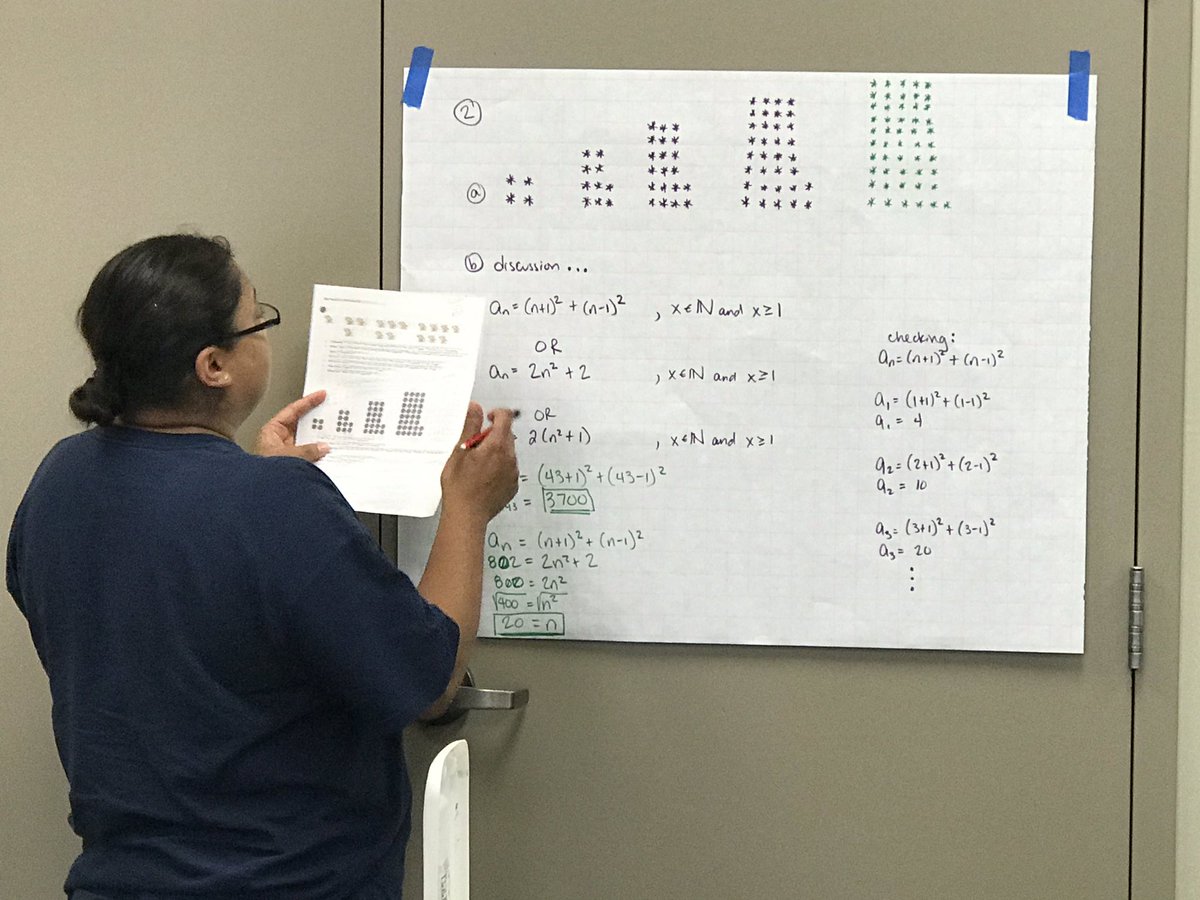 2
a
b discussion...
aₙ = (n+1)² + (n-1)² , x ∈ ℕ and x ≥ 1
OR
aₙ = 2n² + 2 , x ∈ ℕ and x ≥ 1
OR
= 2(n²+1) , x ∈ ℕ and x ≥ 1
= (43+1)² + (43-1)²
43 = 3700
aₙ = (n+1)² + (n-1)²
802 = 2n² + 2
800 = 2n²
√400 = √n²
20 = n
checking:
aₙ = (n+1)² + (n-1)²
a₁ = (1+1)² + (1-1)²
a₁ = 4
a₂ = (2+1)² + (2-1)²
a₂ = 10
a₃ = (3+1)² + (3-1)²
a₃ = 20
⋮